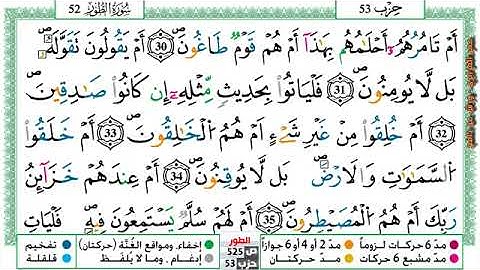 سُورَةُ الطُّورِ 52
حِزْب 53
أَمْ تَامُرُهُمُۥٓ أَحْلَٰمُهُم بِهَٰذَآ أَمْ هُمْ قَوْمٌ طَاغُونَ 30 أَمْ يَقُولُونَ تَقَوَّلَهُۥ
بَل لَّا يُومِنُونَ 31 فَلْيَاتُوا بِحَدِيثٍ مِّثْلِهِۦٓ إِن كَانُوا صَٰدِقِينَ
32 أَمْ خُلِقُوا مِنْ غَيْرِ شَےْءٍ أَمْ هُمُ الْخَٰلِقُونَ 33 أَمْ خَلَقُوا
السَّمَٰوَٰتِ وَالَارْضَ بَل لَّا يُوقِنُونَ 34 أَمْ عِندَهُمْ خَزَآئِنُ
رَبِّكَ أَمْ هُمُ الْمُصَۜيْطِرُونَ 35 أَمْ لَهُمْ سُلَّمٌ يَسْتَمِعُونَ فِيهِ فَلْيَاتِ
مدّ 6 حركات لزوماً مدّ 2 أو 4 أو 6 جوازاً الطور إخفاء، ومواقع الغُنَّة (حركتان) تفخيم
مدّ مشبع 6 حركات مدّ حركتان ص 525 حزب 53 إدغام، وما لا يُلفَظ قلقلة